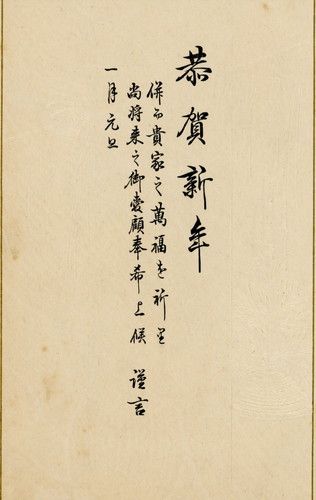 恭賀新年
併而貴家之萬福を祈里
尚将来之御愛顧奉希上候 謹言
一月元旦